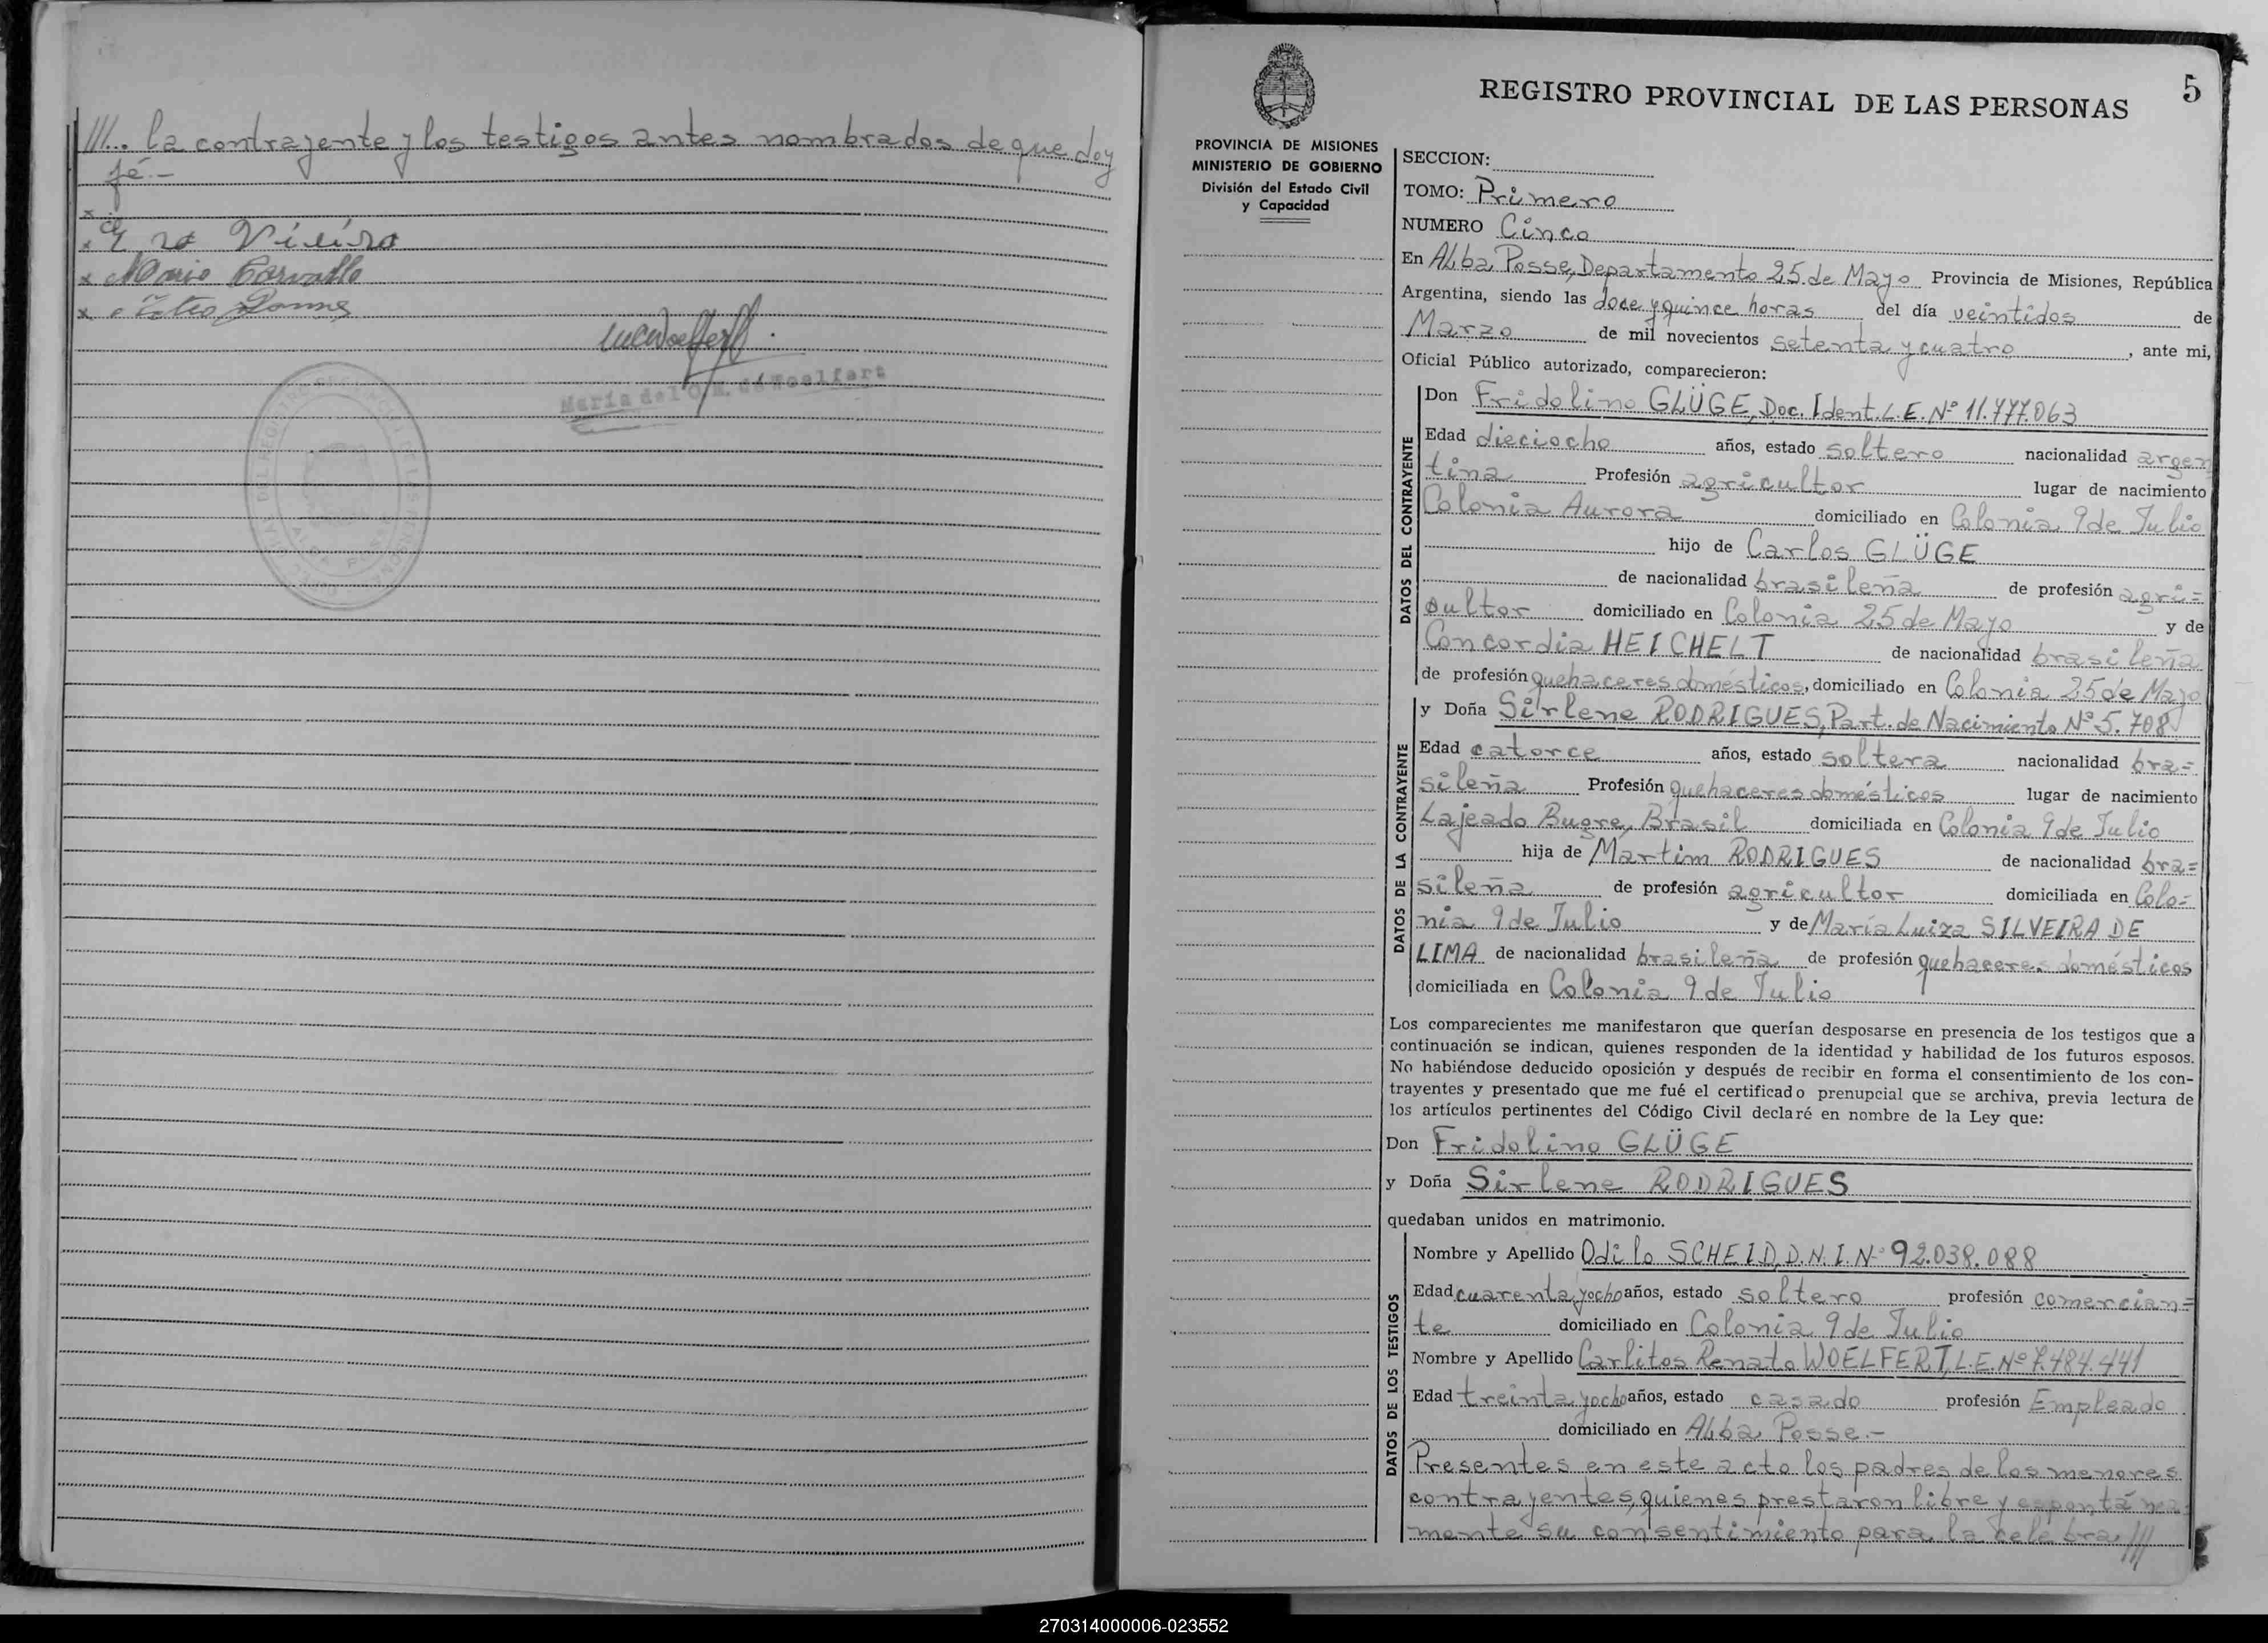 ///... la contrayente y los testigos antes nombrados de que doy
fé.-
x
x Vieira
x Mario Carvallo
x
María del C. M. de Woelfert
5
REGISTRO PROVINCIAL DE LAS PERSONAS
PROVINCIA DE MISIONES
MINISTERIO DE GOBIERNO
División del Estado Civil
y Capacidad
SECCION:
TOMO: Primero
NUMERO Cinco
En Alba Posse, Departamento 25 de Mayo Provincia de Misiones, República
Argentina, siendo las doce y quince horas del día veintidos de
Marzo de mil novecientos setenta y cuatro, ante mi,
Oficial Público autorizado, comparecieron:
DATOS DEL CONTRAYENTE
Don Fridolino GLÜGE, Doc. Ident. L.E. Nº 11.477.063
Edad dieciocho años, estado soltero nacionalidad argen
tina Profesión agricultor lugar de nacimiento
Colonia Aurora domiciliado en Colonia 9 de Julio
hijo de Carlos GLÜGE
de nacionalidad brasileña de profesión agri=
cultor domiciliado en Colonia 25 de Mayo y de
Concordia HEICHELT de nacionalidad brasileña
de profesión quehaceres domésticos, domiciliado en Colonia 25 de Mayo
DATOS DE LA CONTRAYENTE
y Doña Sirlene RODRIGUES, Part. de Nacimiento Nº 5.708
Edad catorce años, estado soltera nacionalidad bra=
sileña Profesión quehaceres domésticos lugar de nacimiento
Lajeado Bugre, Brasil domiciliada en Colonia 9 de Julio
hija de Martim RODRIGUES de nacionalidad bra=
sileña de profesión agricultor domiciliada en Colo=
nia 9 de Julio y de María Luiza SILVEIRA DE
LIMA de nacionalidad brasileña de profesión quehaceres domésticos
domiciliada en Colonia 9 de Julio
Los comparecientes me manifestaron que querían desposarse en presencia de los testigos que a
continuación se indican, quienes responden de la identidad y habilidad de los futuros esposos.
No habiéndose deducido oposición y después de recibir en forma el consentimiento de los con-
trayentes y presentado que me fué el certificado prenupcial que se archiva, previa lectura de
los artículos pertinentes del Código Civil declaré en nombre de la Ley que:
Don Fridolino GLÜGE
y Doña Sirlene RODRIGUES
quedaban unidos en matrimonio.
DATOS DE LOS TESTIGOS
Nombre y Apellido Odilo SCHEID, D.N.I. Nº 92.038.088
Edad cuarenta y ocho años, estado soltero profesión comercian=
te domiciliado en Colonia 9 de Julio
Nombre y Apellido Carlitos Renato WOELFERT, L.E. Nº 7.484.441
Edad treinta y ocho años, estado casado profesión Empleado
domiciliado en Alba Posse.-
Presentes en este acto los padres de los menores
contrayentes, quienes prestaron libre y espontánea
mente su consentimiento para la celebra///
270314000006-023552